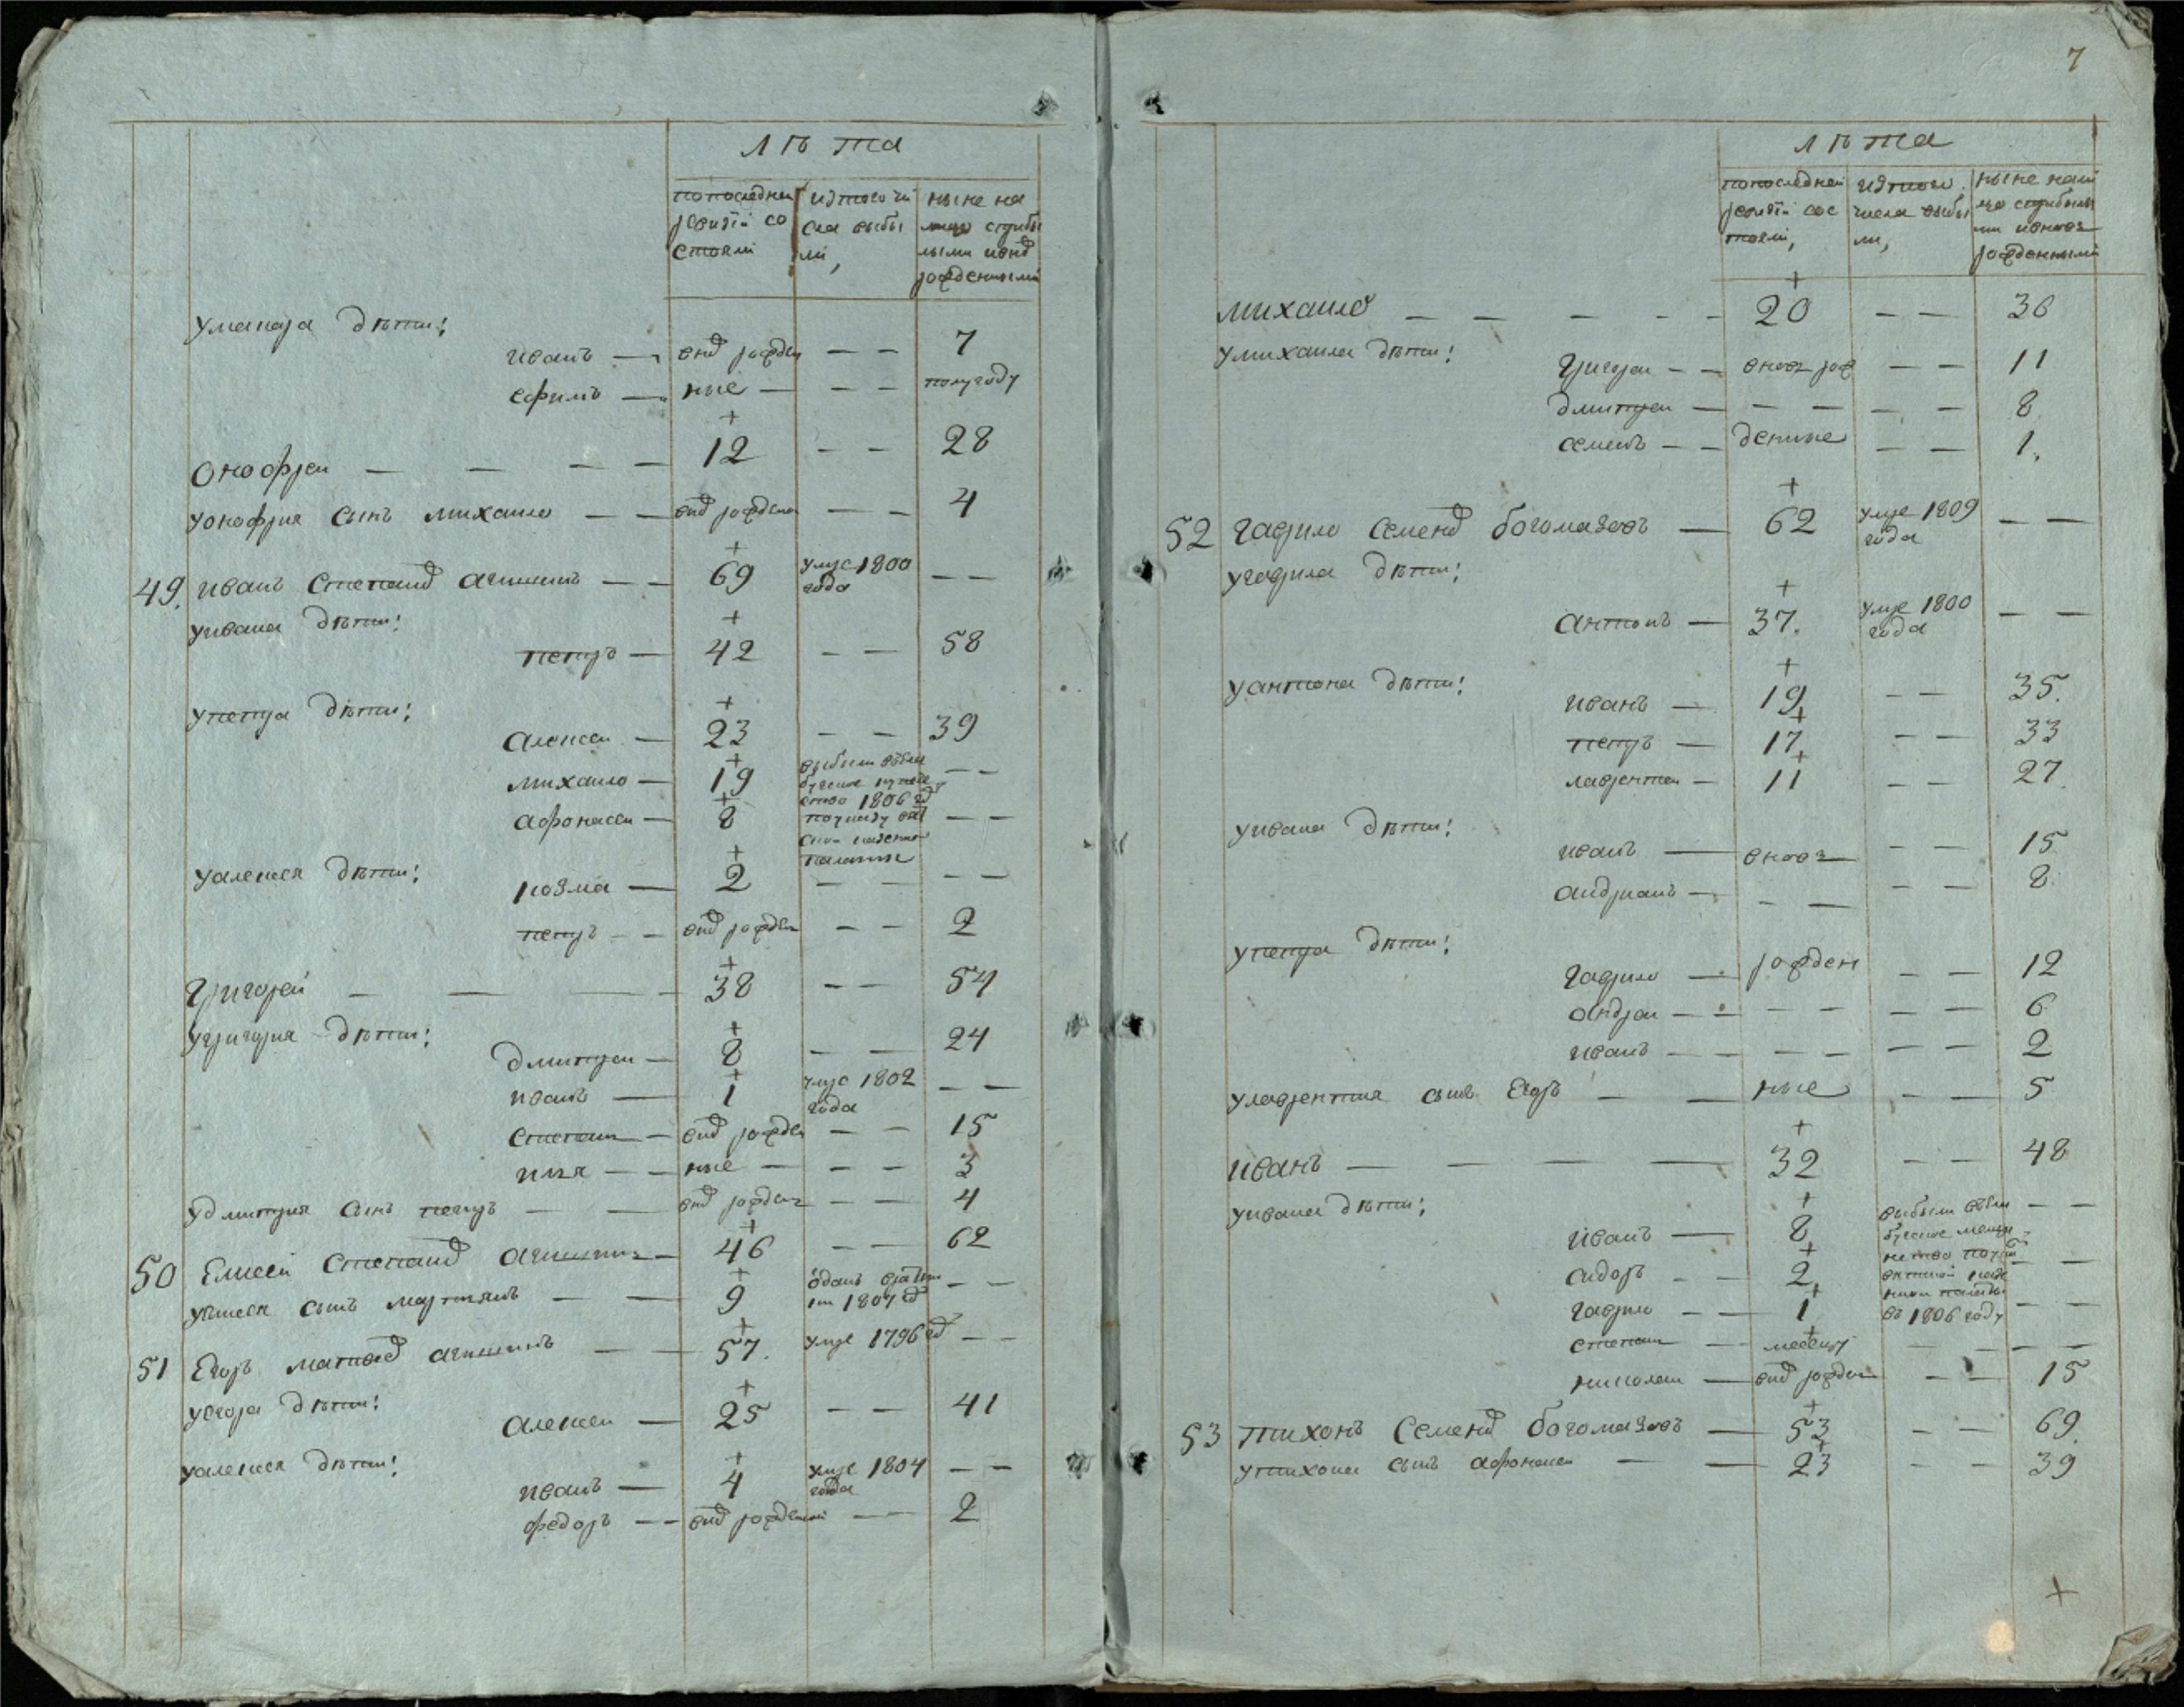 лѣта
попоследнеи ревизіи состояли
изтого числа выбыли,
ныне на лицо сприбылыми ивнов рожденными
умакара дѣти:
иванъ — внов рожден — — 7
ефимъ — ные — — — полугоду
онофреи — — — — + 12 — — 28
уонофрия сынъ михаило — — внов рожден — — 4
49. иванъ степанов — — + 69 умре 1800 года — —
уивана дѣти:
петръ — + 42 — — 58
упетра дѣти:
алексеи — + 23 — — 39
михаило — + 19 выбыли 1806 год — —
афонасеи — + 8 поуказу казенно палаты — —
уалексея дѣти:
козма — + 2 — — — —
петръ — — внов рожден — — 2
григореи — — — + 38 — — 54
угригорья дѣти:
дмитреи — + 8 — — 24
иванъ — + 1 умре 1802 года — —
степанъ — внов рожден — — 15
илья — — ные — — — 3
удмитрия сынъ петръ — — внов рожден — — 4
50 Елисеи степанов — + 46 — — 62
уелисея сынъ мартянъ — — + 9 óданъ врекруты 1807 год — —
51 Егоръ матвеев — + 57. умре 1796 год — —
уегора дѣти:
алексеи — + 25 — — 41
уалексея дѣти:
иванъ — + 4 умре 1804 года — —
федоръ — — внов рожденной — — 2
7
лѣта
попоследнеи ревизіи состояли,
изтого числа выбыли,
ныне налицо сприбылыми ивновь рожденными
михаило — — — — — + 20 — — 36
умихаила дѣти:
григореи — — вновь рож — — 11
дмитреи — — — — — 8
семенъ — — денные — — 1.
52 гаврило семенов богомазовъ — + 62 умре 1809 года — —
угаврила дѣти:
антонъ — + 37. умре 1800 года — —
уантона дѣти:
иванъ — + 19 — — 35.
петръ — + 17 — — 33
лаврентеи — + 11 — — 27.
уивана дѣти:
иванъ — вновь — — — 15
андреанъ — — — — — 8.
упетра дѣти:
гаврило — рожден — — 12
андреи — — — — — — 6
иванъ — — — — — — 2
улаврентия сынъ Егоръ — — ные — — 5
иванъ — — — — + 32 — — 48
уивана дѣти:
иванъ — + 8 выбыли — —
сидоръ — — + 2 казенной палаты — —
гаврило — — + 1 въ 1806 году — —
степанъ — + месецъ — — — —
николаи — внов рожден — — 15
53 тихонъ семенов богомазовъ — + 53 — — 69.
утихона сынъ афонасеи — — + 23 — — 39
+